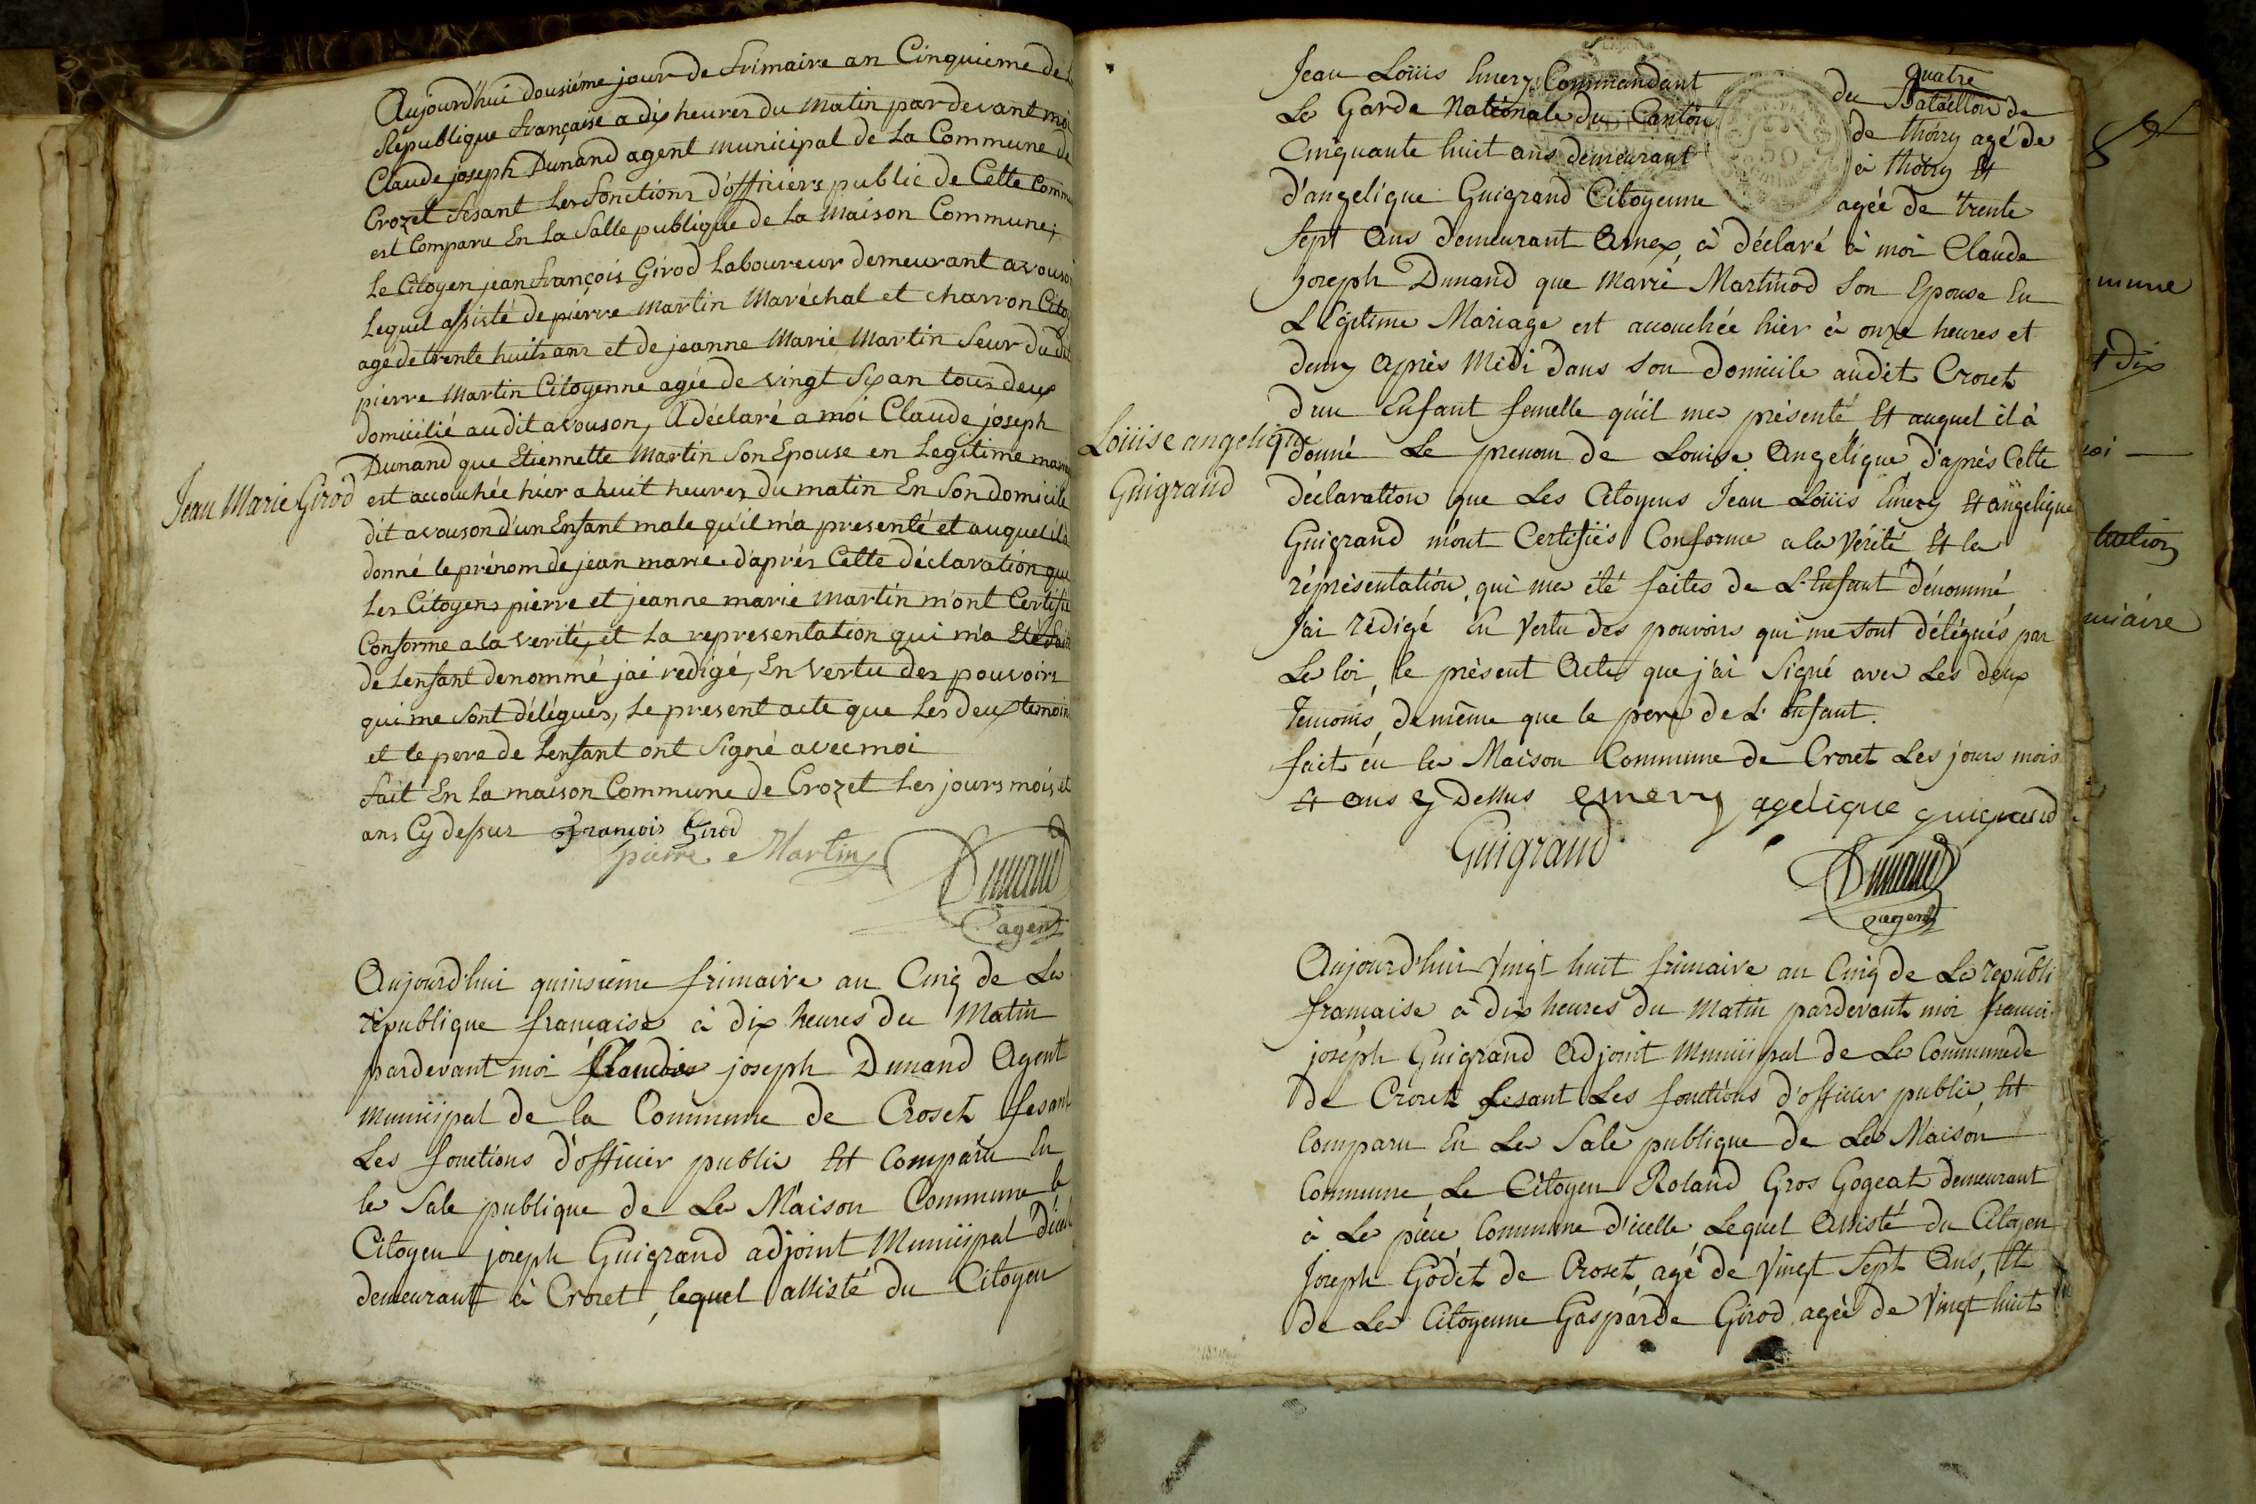 Aujourd'hui dousiéme jour de frimaire an Cinquieme de la
Republique française a dix heures du matin par devant moi
Claude joseph Dunand agent municipal de La Commune de
Crozet fesant Les fonctions d'officiers public de Cette Comm
est Comparu En La Salle publique de La Maison Commune,
Le Citoyen jean françois Girod Laboureur demeurant avouson
Lequel assisté de pierre Martin Maréchal et charron Citoy
agé de trente huit ans et de jeanne Marie Martin Seur du dit
pierre Martin Citoyenne agée de vingt Six an tous deux
domicilié au dit avouson, A déclaré a moi Claude joseph
Dunand que Etiennette Martin Son Epouse en Legitime maria
Jean Marie Girod
est accouchée hier a huit heures du matin En Son domicile
dit avouson d'un Enfant male qu'il m'a presenté et auquel il a
donné le prénom de jean marie d'aprés Cette déclaration que
Les Citoyens pierre et jeanne marie Martin m'ont Certifié
Conforme a la verité, et La representation qui m'a Eté fait
de Lenfant denommé jai redigé, En vertu des pouvoirs
qui me Sont délégués, Le present acte que Les deux temoin
et le pere de Lenfant ont Signé avec moi
fait En La maison Commune de Crozet Les jours mois et
ans Cy dessus françois Girod
pierre Martin
Dunand
agent
Aujourd'hui quinsième frimaire an Cinq de La
république française à dix heures du Matin
pardevant moi Claude joseph Dunand Agent
municipal de la Commune de Croset fesant
Les fonctions d'officier public Est Comparu En
la Sale publique de La Maison Commune le
Citoyen joseph Guigrand adjoint Municipal
demeurant à Crozet, lequel assisté du Citoyen
quatre
Jean Loüis Emery Commandant du Bataillon de
La Garde Nationale du Canton de thoiry agé de
Cinquante huit ans demeurant à thoiry Et
d'angelique Guigrand Citoyenne agée de trente
Sept Ans demeurant Ornex, à déclaré à moi Claude
joseph Dunand que Marie Martinod Son Epouse En
Légitime Mariage est accouchée hier à onze heures et
demy Après Midi dans Son Domicile audit Crozet
d'un Enfant femelle qu'il ma présenté Et auquel il à
Loüise angelique
Guigrand
donné Le prenom de Louise Angélique, d'aprés Cette
déclaration que Les Citoyens Jean Loüis Emery Et angelique
Guigrand m'ont Certifiés Conforme a la Vérité Et la
réprésentation, qui ma été faites de L'Enfant dénommé
J'ai rédigé En Vertu des pouvoirs qui me sont délégués par
La loi, le présent Acte que j'ai Signé avec Les deux
Temoins, de même que le pere de L'Enfant.
fait en la Maison Commune de Crozet Les jours mois
Et ans Cy Dessus emery agelique guigrand
Guigrand
Dunand
agent
Aujourd'hui Vingt huit frimaire an Cinq de La républi
française à dix heures du Matin pardevant moi francoi
joseph Guigrand Adjoint Municipal de La Commune de
de Crozet fesant Les fonctions d'officier public, Est
Comparu En La Sale publique de La Maison
Commune Le Citoyen Roland Gros Gogeat demeurant
à La pièce Commune d'icelle Lequel Assisté du Citoyen
Joseph Godet de Croset, agé de Vingt Sept Ans, Et
de La Citoyenne Gasparde Girod agée de Vingt huit
mune
dix
oi
tation
miaire